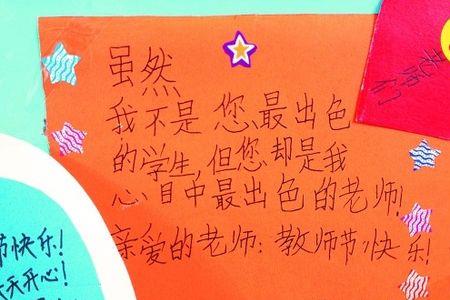 虽然
我不是您最出色
的学生,但您却是我
心目中最出色的老师!
亲爱的老师:教师节快乐!
节快乐!
天天开心!
老师们